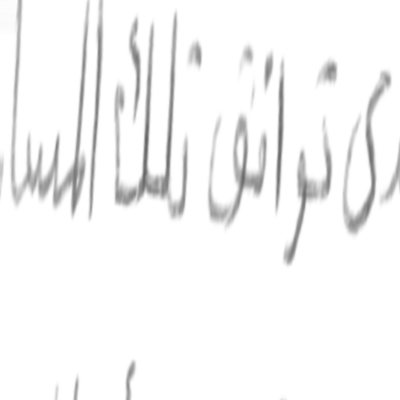 دى توافق تلك المسا